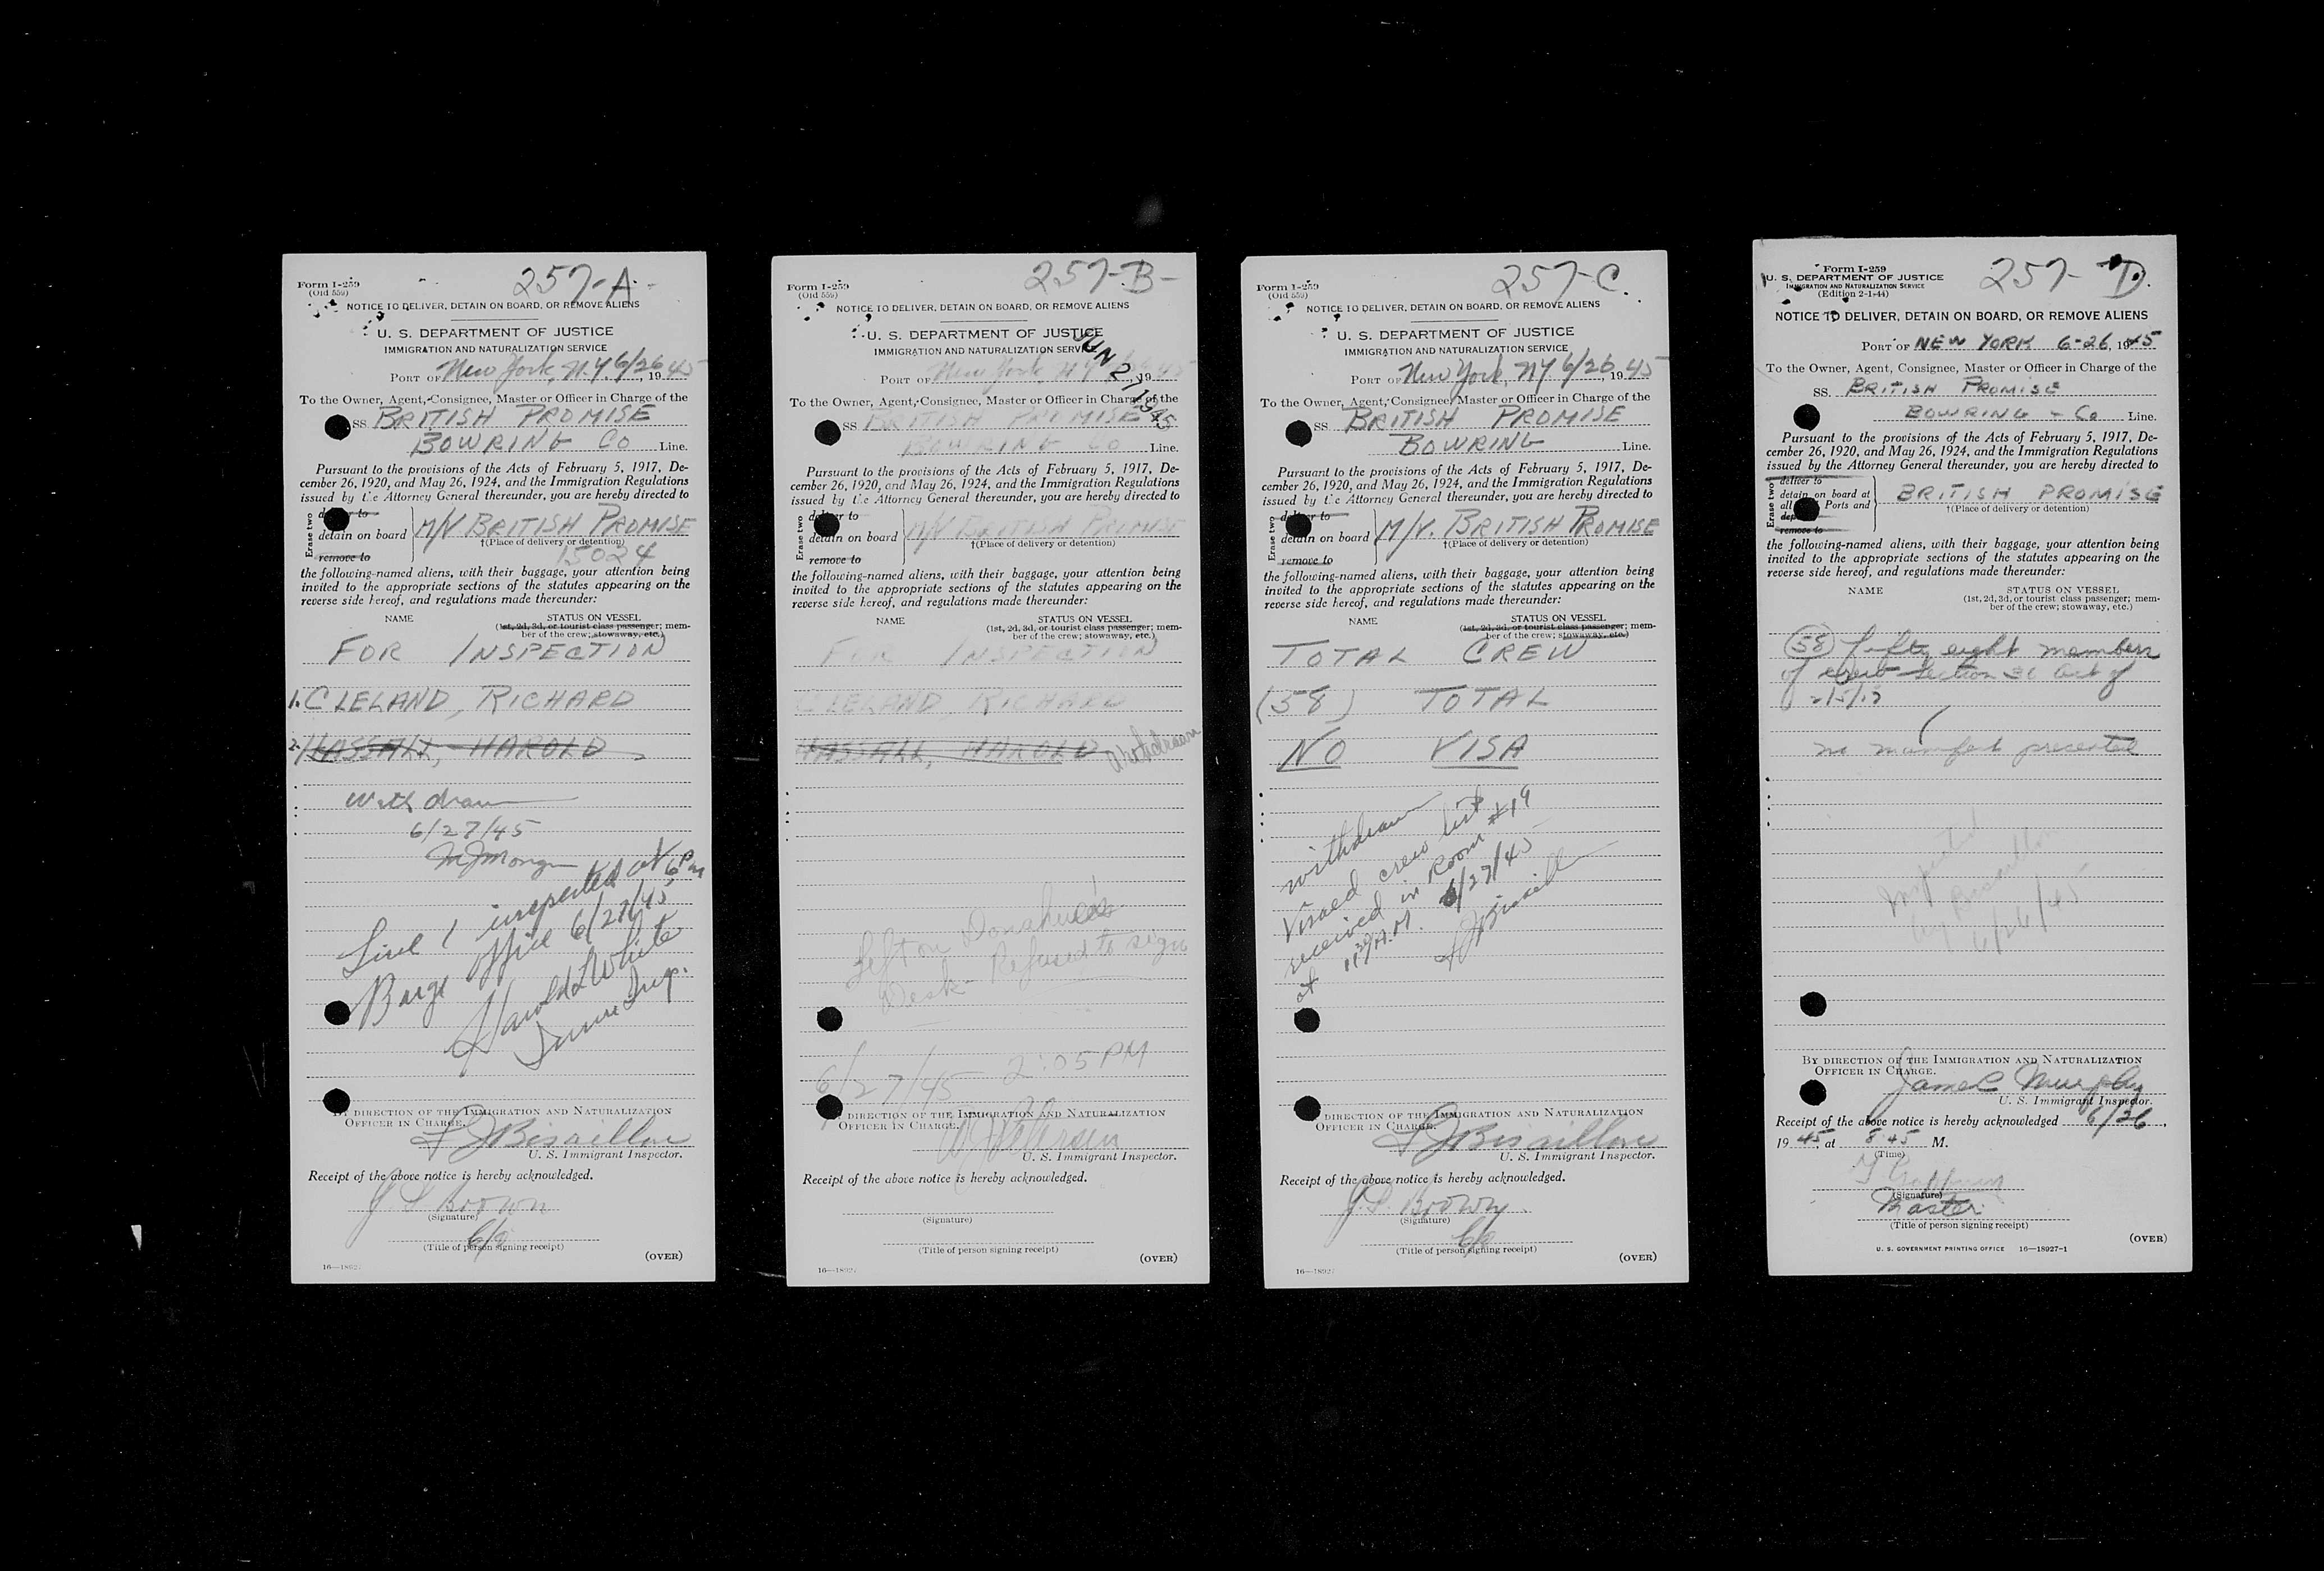 257-A-
Form I-259
(Old 559)
NOTICE TO DELIVER, DETAIN ON BOARD, OR REMOVE ALIENS
U. S. DEPARTMENT OF JUSTICE
IMMIGRATION AND NATURALIZATION SERVICE
PORT OF New York, N.Y. 6/26, 1945
To the Owner, Agent, Consignee, Master or Officer in Charge of the
SS. BRITISH PROMISE
BOWRING Co Line.
Pursuant to the provisions of the Acts of February 5, 1917, De-
cember 26, 1920, and May 26, 1924, and the Immigration Regulations
issued by the Attorney General thereunder, you are hereby directed to
Erase two
deliver to
detain on board M/V BRITISH PROMISE
†(Place of delivery or detention)
remove to 15024
the following-named aliens, with their baggage, your attention being
invited to the appropriate sections of the statutes appearing on the
reverse side hereof, and regulations made thereunder:
NAME STATUS ON VESSEL
(1st, 2d, 3d, or tourist class passenger; mem-
ber of the crew; stowaway, etc.)
FOR INSPECTION
1. CLELAND, RICHARD
2. HASSALL, HAROLD
Withdrawn
6/27/45
Line 1 inspected at 6 PM
Barge Office 6/27/45
Harold L White
Imm Insp.
BY DIRECTION OF THE IMMIGRATION AND NATURALIZATION
OFFICER IN CHARGE.
L J Bisaillon
U. S. Immigrant Inspector.
Receipt of the above notice is hereby acknowledged.
J. S. Brown
(Signature)
(Title of person signing receipt)
(OVER)
257-B-
Form I-259
(Old 559)
NOTICE TO DELIVER, DETAIN ON BOARD, OR REMOVE ALIENS
U. S. DEPARTMENT OF JUSTICE
IMMIGRATION AND NATURALIZATION SERVICE
JUN 27 1945
PORT OF New York, N.Y. 1945
To the Owner, Agent, Consignee, Master or Officer in Charge of the
SS BRITISH PROMISE
BOWRING Co Line.
Pursuant to the provisions of the Acts of February 5, 1917, De-
cember 26, 1920, and May 26, 1924, and the Immigration Regulations
issued by the Attorney General thereunder, you are hereby directed to
Erase two
deliver to
detain on board M/V BRITISH PROMISE
†(Place of delivery or detention)
remove to
the following-named aliens, with their baggage, your attention being
invited to the appropriate sections of the statutes appearing on the
reverse side hereof, and regulations made thereunder:
NAME STATUS ON VESSEL
(1st, 2d, 3d, or tourist class passenger; mem-
ber of the crew; stowaway, etc.)
FOR INSPECTION
CLELAND, RICHARD
HASSALL, HAROLD Withdrawn
Left on Donahue's
Desk - Refused to sign
6/27/45 2:05 PM
BY DIRECTION OF THE IMMIGRATION AND NATURALIZATION
OFFICER IN CHARGE.
U. S. Immigrant Inspector.
Receipt of the above notice is hereby acknowledged.
(Signature)
(Title of person signing receipt)
(OVER)
257-C.
Form I-259
(Old 559)
NOTICE TO DELIVER, DETAIN ON BOARD, OR REMOVE ALIENS
U. S. DEPARTMENT OF JUSTICE
IMMIGRATION AND NATURALIZATION SERVICE
PORT OF New York, NY 6/26, 1945
To the Owner, Agent, Consignee, Master or Officer in Charge of the
SS. BRITISH PROMISE
BOWRING Line.
Pursuant to the provisions of the Acts of February 5, 1917, De-
cember 26, 1920, and May 26, 1924, and the Immigration Regulations
issued by the Attorney General thereunder, you are hereby directed to
Erase two
deliver to
detain on board M/V. BRITISH PROMISE
†(Place of delivery or detention)
remove to
the following-named aliens, with their baggage, your attention being
invited to the appropriate sections of the statutes appearing on the
reverse side hereof, and regulations made thereunder:
NAME STATUS ON VESSEL
(1st, 2d, 3d, or tourist class passenger; mem-
ber of the crew; stowaway, etc.)
TOTAL CREW
(58) TOTAL
NO VISA
Withdrawn
Visaed crew list
received in Room #19
at A.M. 6/27/45
L J Bisaillon
BY DIRECTION OF THE IMMIGRATION AND NATURALIZATION
OFFICER IN CHARGE.
L J Bisaillon
U. S. Immigrant Inspector.
Receipt of the above notice is hereby acknowledged.
J. S. Brown
(Signature)
(Title of person signing receipt)
(OVER)
257-D.
Form I-259
U. S. DEPARTMENT OF JUSTICE
IMMIGRATION AND NATURALIZATION SERVICE
(Edition 2-1-44)
NOTICE TO DELIVER, DETAIN ON BOARD, OR REMOVE ALIENS
PORT OF NEW YORK 6-26, 1945
To the Owner, Agent, Consignee, Master or Officer in Charge of the
SS. BRITISH PROMISE
BOWRING - Co Line.
Pursuant to the provisions of the Acts of February 5, 1917, De-
cember 26, 1920, and May 26, 1924, and the Immigration Regulations
issued by the Attorney General thereunder, you are hereby directed to
Erase two
deliver to
detain on board at
all Ports and BRITISH PROMISE
†(Place of delivery or detention)
remove to
the following-named aliens, with their baggage, your attention being
invited to the appropriate sections of the statutes appearing on the
reverse side hereof, and regulations made thereunder:
NAME STATUS ON VESSEL
(1st, 2d, 3d, or tourist class passenger; mem-
ber of the crew; stowaway, etc.)
(58) fifty eight members
of crew Section 36 Act of
2/5/17
no manifest presented
Inspected
by Bisaillon
6/26/45
BY DIRECTION OF THE IMMIGRATION AND NATURALIZATION
OFFICER IN CHARGE.
James Murphy
U. S. Immigrant Inspector.
Receipt of the above notice is hereby acknowledged 6/26,
1945, at 8:45 M.
(Time)
(Signature)
Master
(Title of person signing receipt)
(OVER)
U. S. GOVERNMENT PRINTING OFFICE 16—18927-1